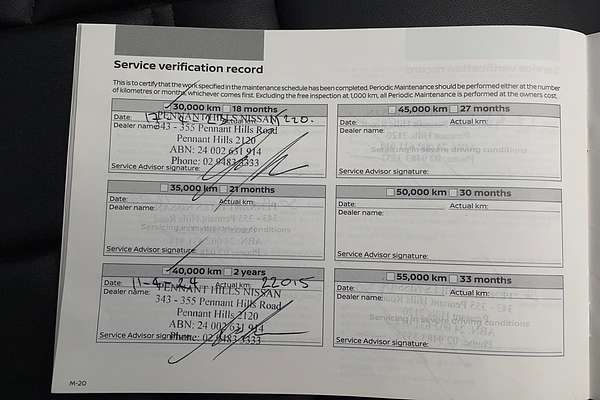 Service verification record
This is to certify that the work specified in the maintenance schedule has been completed. Periodic Maintenance should be performed either at the number
of kilometres or months, whichever comes first. Excluding the free inspection at 1,000 km, all Periodic Maintenance is performed at the owners cost.
30,000 km 18 months
Date: Actual km:
PENNANT HILLS NISSAN
Dealer name:
343 - 355 Pennant Hills Road
Pennant Hills 2120
ABN: 24 002 631 914
Phone: 02 9483 3333
Service Advisor signature:
35,000 km 21 months
Date: Actual km:
Dealer name:
Servicing in severe driving conditions
Service Advisor signature:
40,000 km 2 years
Date: 11-4-24 Actual km: 22015
PENNANT HILLS NISSAN
Dealer name:
343 - 355 Pennant Hills Road
Pennant Hills 2120
ABN: 24 002 631 914
Phone: 02 9483 3333
Service Advisor signature:
45,000 km 27 months
Date: Actual km:
Dealer name:
Servicing in severe driving conditions
Service Advisor signature:
50,000 km 30 months
Date: Actual km:
Dealer name:
Service Advisor signature:
55,000 km 33 months
Date: Actual km:
Dealer name:
Servicing in severe driving conditions
Service Advisor signature:
M-20